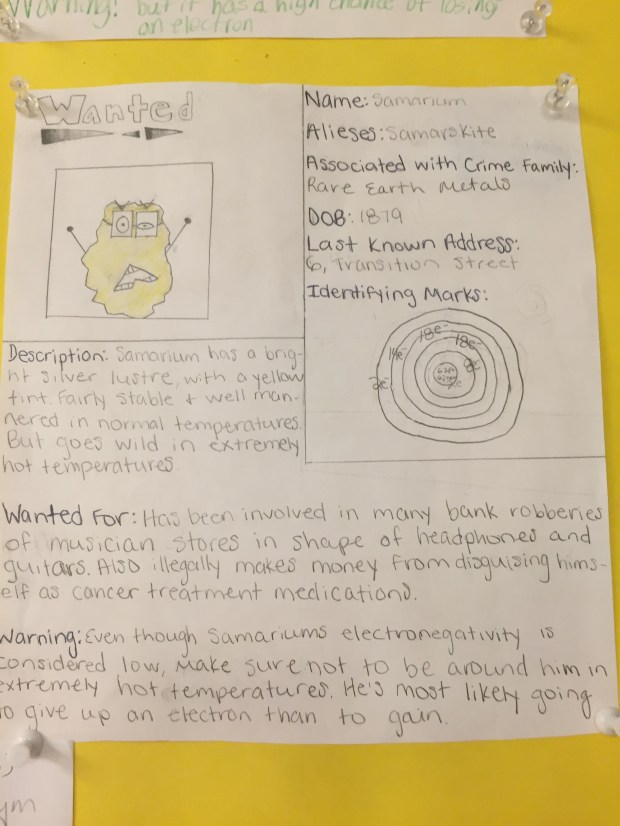 Warning: but it has a high chance of losing
an electron
Wanted
Name: Samarium
Alieses: Samarskite
Associated with Crime Family:
Rare Earth Metals
DOB: 1879
Last Known Address:
6, Transition Street
Identifying Marks:
18e-
18e-
8e-
2e-
Description: Samarium has a brig-
ht silver lustre, with a yellow
tint. Fairly stable + well man-
nered in normal temperatures.
But goes wild in extremely
hot temperatures.
Wanted For: Has been involved in many bank robberies
of musician stores in shape of headphones and
guitars. Also illegally makes money from disguising hims-
elf as cancer treatment medications.
Warning: Even though Samariums electronegativity is
considered low, make sure not to be around him in
extremely hot temperatures. He's most likely going
to give up an electron than to gain.
ym